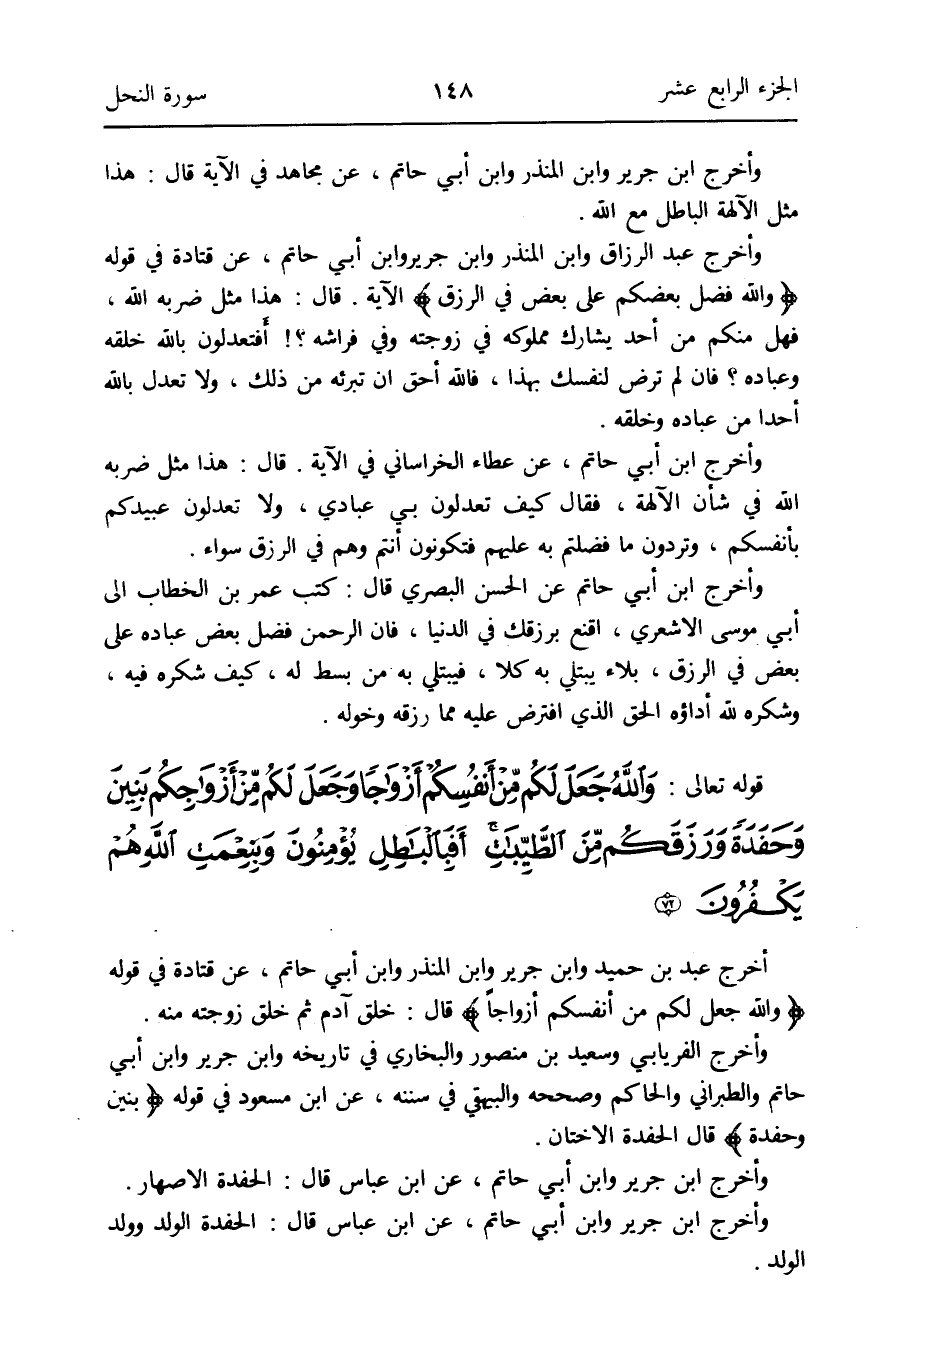 الجزء الرابع عشر ١٤٨ سورة النحل
وأخرج ابن جرير وابن المنذر وابن أبي حاتم ، عن مجاهد في الآية قال : هذا
مثل الآلهة الباطل مع الله .
وأخرج عبد الرزاق وابن المنذر وابن جريروابن أبي حاتم ، عن قتادة في قوله
﴿ والله فضل بعضكم على بعض في الرزق ﴾ الآية . قال : هذا مثل ضربه الله ،
فهل منكم من أحد يشارك مملوكه في زوجته وفي فراشه ؟! أفتعدلون بالله خلقه
وعباده ؟ فان لم ترض لنفسك بهذا ، فالله أحق ان تبرئه من ذلك ، ولا تعدل بالله
أحدا من عباده وخلقه .
وأخرج ابن أبي حاتم ، عن عطاء الخراساني في الآية . قال : هذا مثل ضربه
الله في شأن الآلهة ، فقال كيف تعدلون بي عبادي ، ولا تعدلون عبيدكم
بأنفسكم ، وتردون ما فضلتم به عليهم فتكونون أنتم وهم في الرزق سواء .
وأخرج ابن أبي حاتم عن الحسن البصري قال : كتب عمر بن الخطاب الى
أبي موسى الاشعري ، اقنع برزقك في الدنيا ، فان الرحمن فضل بعض عباده على
بعض في الرزق ، بلاء يبتلي به كلا ، فيبتلي به من بسط له ، كيف شكره فيه ،
وشكره لله أداؤه الحق الذي افترض عليه مما رزقه وخوله .
قوله تعالى : وَٱللَّهُ جَعَلَ لَكُم مِّنْ أَنفُسِكُمْ أَزْوَٰجًا وَجَعَلَ لَكُم مِّنْ أَزْوَٰجِكُم بَنِينَ
وَحَفَدَةً وَرَزَقَكُم مِّنَ ٱلطَّيِّبَٰتِ ۚ أَفَبِٱلْبَٰطِلِ يُؤْمِنُونَ وَبِنِعْمَتِ ٱللَّهِ هُمْ
يَكْفُرُونَ ٧٢
أخرج عبد بن حميد وابن جرير وابن المنذر وابن أبي حاتم ، عن قتادة في قوله
﴿ والله جعل لكم من أنفسكم أزواجاً ﴾ قال : خلق آدم ثم خلق زوجته منه .
وأخرج الفريابي وسعيد بن منصور والبخاري في تاريخه وابن جرير وابن أبي
حاتم والطبراني والحاكم وصححه والبيهقي في سننه ، عن ابن مسعود في قوله ﴿ بنين
وحفدة ﴾ قال الحفدة الاختان .
وأخرج ابن جرير وابن أبي حاتم ، عن ابن عباس قال : الحفدة الاصهار .
وأخرج ابن جرير وابن أبي حاتم ، عن ابن عباس قال : الحفدة الولد وولد
الولد .